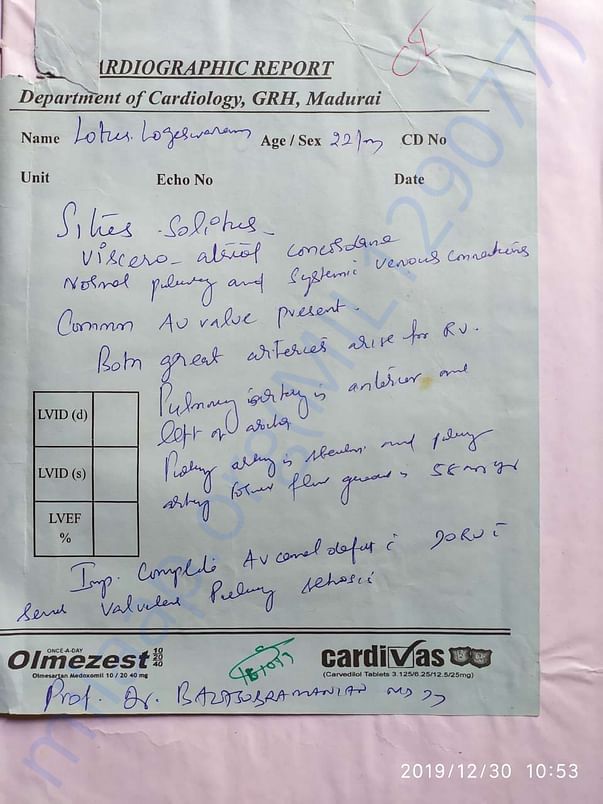 ARDIOGRAPHIC REPORT
Department of Cardiology, GRH, Madurai
Name Lotus. Logeswaran Age / Sex 22/m CD No
Unit Echo No Date
Situs Solitus -
Viscero - atrial concordance
Normal and Systemic venous connections
Common AV valve present.
Both great arteries arise for RV.
Pulmonary artery is anterior and
left of aorta
artery is and
artery flow is 58
LVID (d)
LVID (s)
LVEF
%
Imp. Complete AV canal defect c̄ DORV c̄
Valvular
ONCE-A-DAY
Olmezest 10 20 40
Olmesartan Medoxomil 10 / 20 40 mg
cardivas
(Carvedilol Tablets 3.125/6.25/12.5/25mg)
Prof. Dr. BALASUBRAMANIAN MD
2019/12/30 10:53